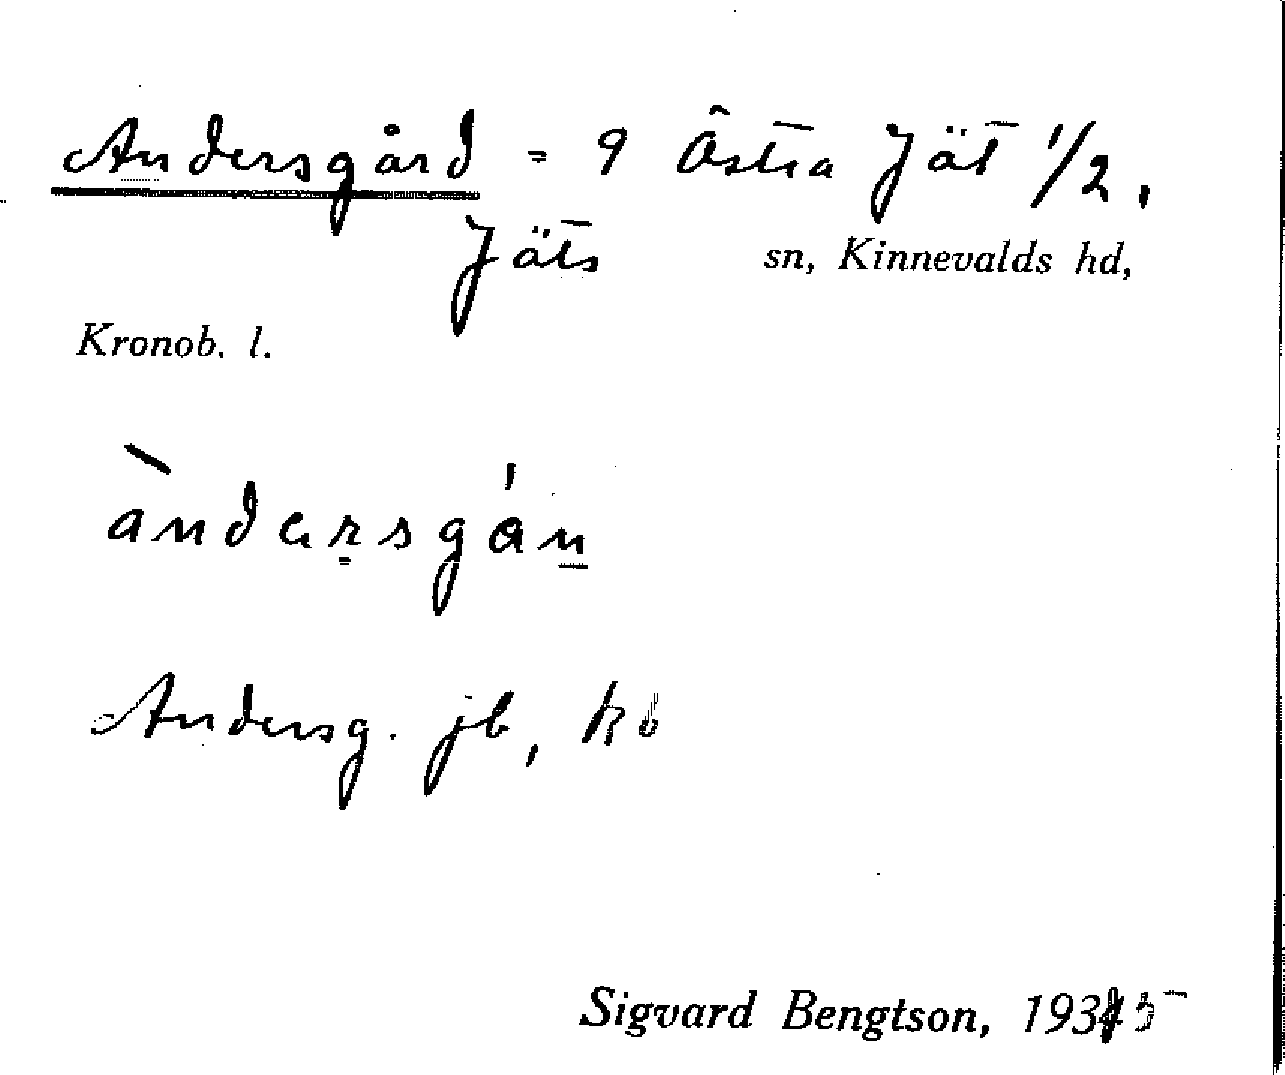 Andersgård = 9 Östra Jät 1/2,
Jäts sn, Kinnevalds hd,
Kronob. l.
àndɑrsgán
Andersg. jb, kb
Sigvard Bengtson, 1935